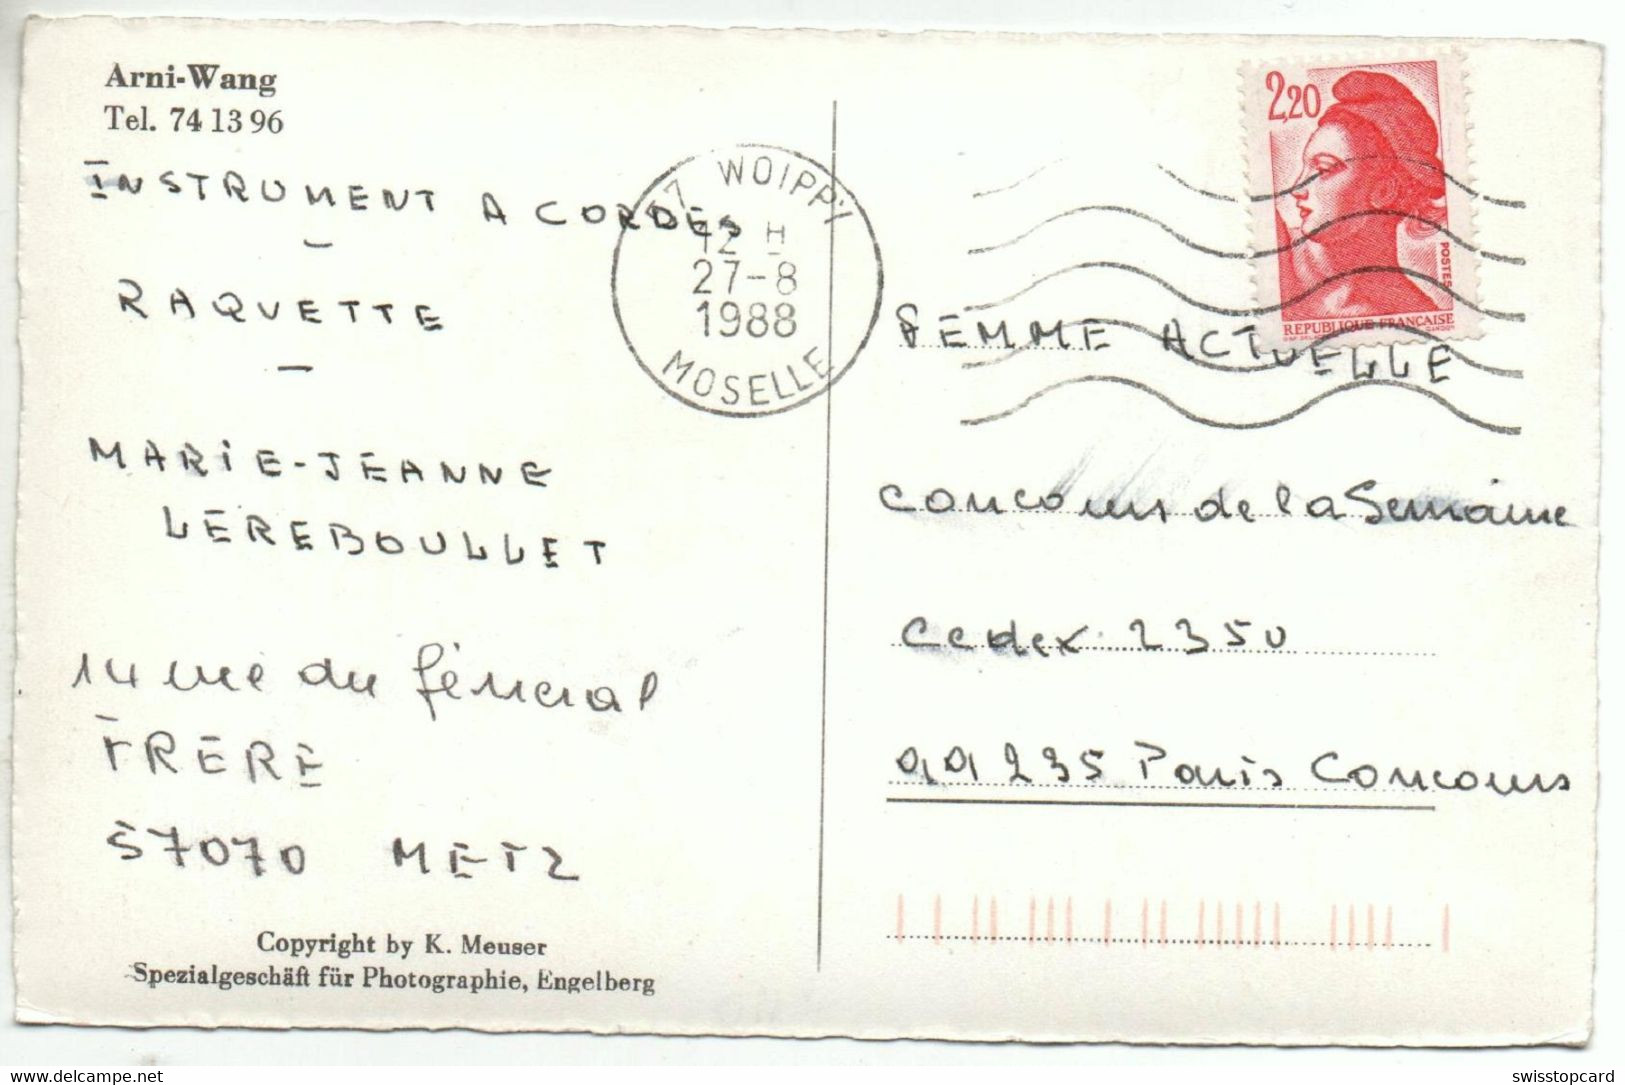 Arni-Wang
Tel. 74 13 96
INSTRUMENT A CORDES
–
RAQUETTE
–
MARIE-JEANNE
LEREBOULLET
14 rue du Général
FRERE
57070 METZ
Copyright by K. Meuser
Spezialgeschäft für Photographie, Engelberg
57 WOIPPY
12 H
27-8
1988
MOSELLE
2,20
POSTES
REPUBLIQUE FRANÇAISE
FEMME ACTUELLE
Concours de la Semaine
Cedex 2350
99235 Paris Concours
delcampe.net
swisstopcard